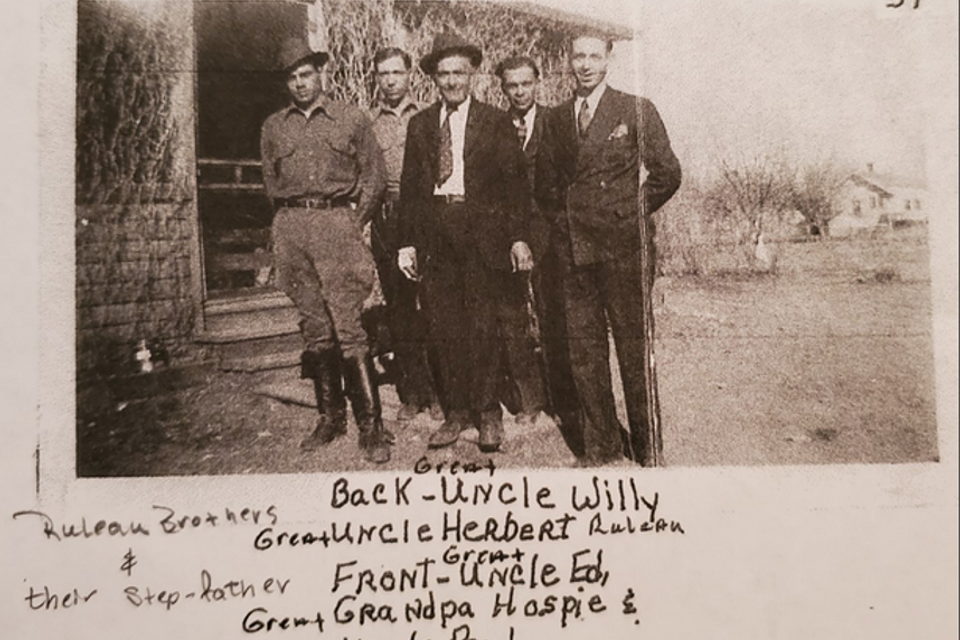 Great
Back - Uncle Willy
Great Uncle Herbert Ruleau
Great
Front - Uncle Ed,
Great Grandpa Hospie &
Ruleau Brothers
&
their Step-father